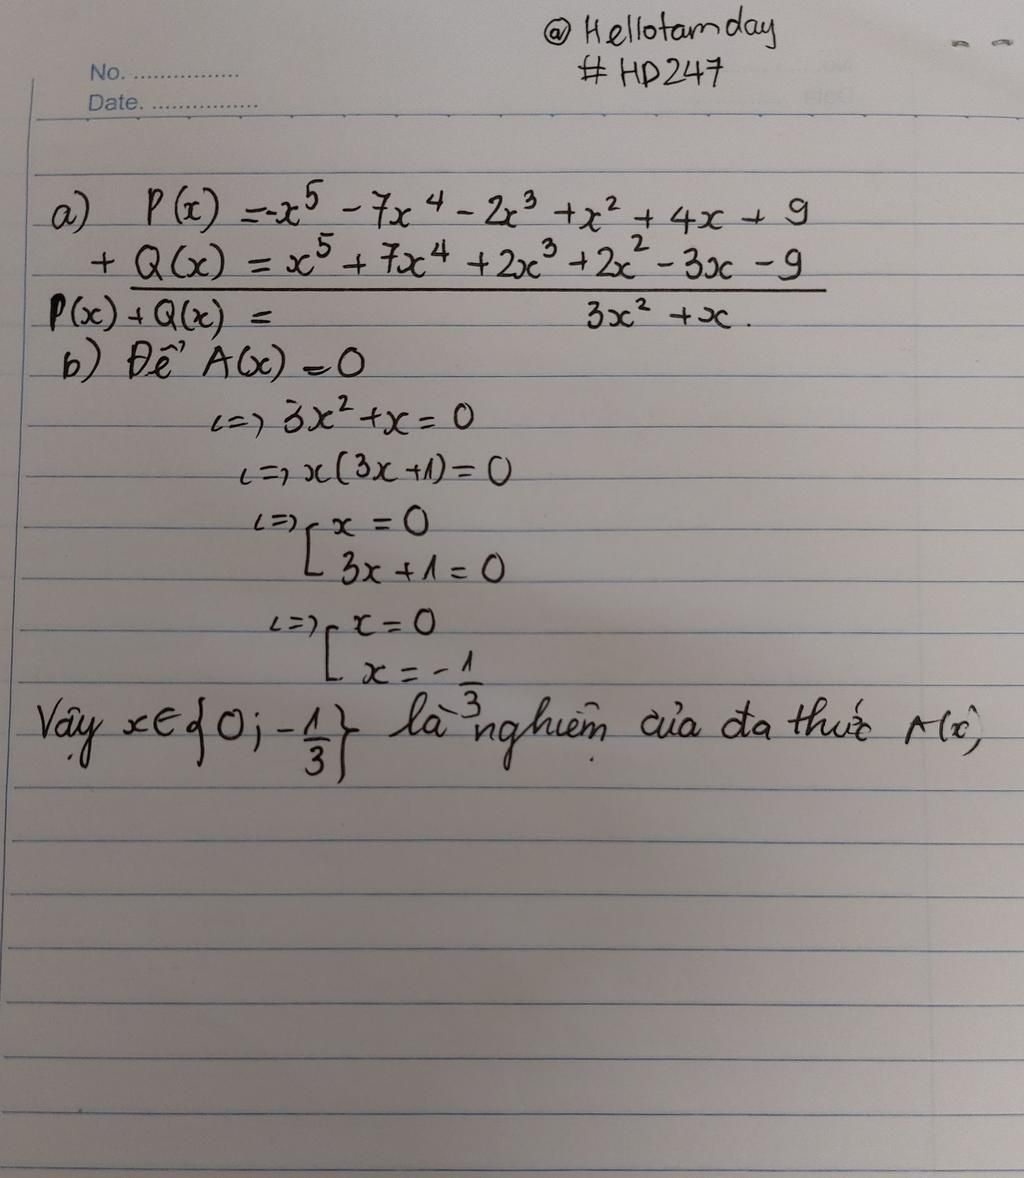 @ Hellotamday
# HD247
No. ................
Date. ................
a) P(x) = -x⁵ - 7x⁴ - 2x³ + x² + 4x + 9
+ Q(x) = x⁵ + 7x⁴ + 2x³ + 2x² - 3x - 9
P(x) + Q(x) = 3x² + x.
b) Để A(x) = 0
<=> 3x² + x = 0
<=> x(3x + 1) = 0
<=> [ x = 0
3x + 1 = 0
<=> [ x = 0
x = - 1/3
Vậy x ∈ {0; - 1/3} là nghiệm của đa thức A(x)